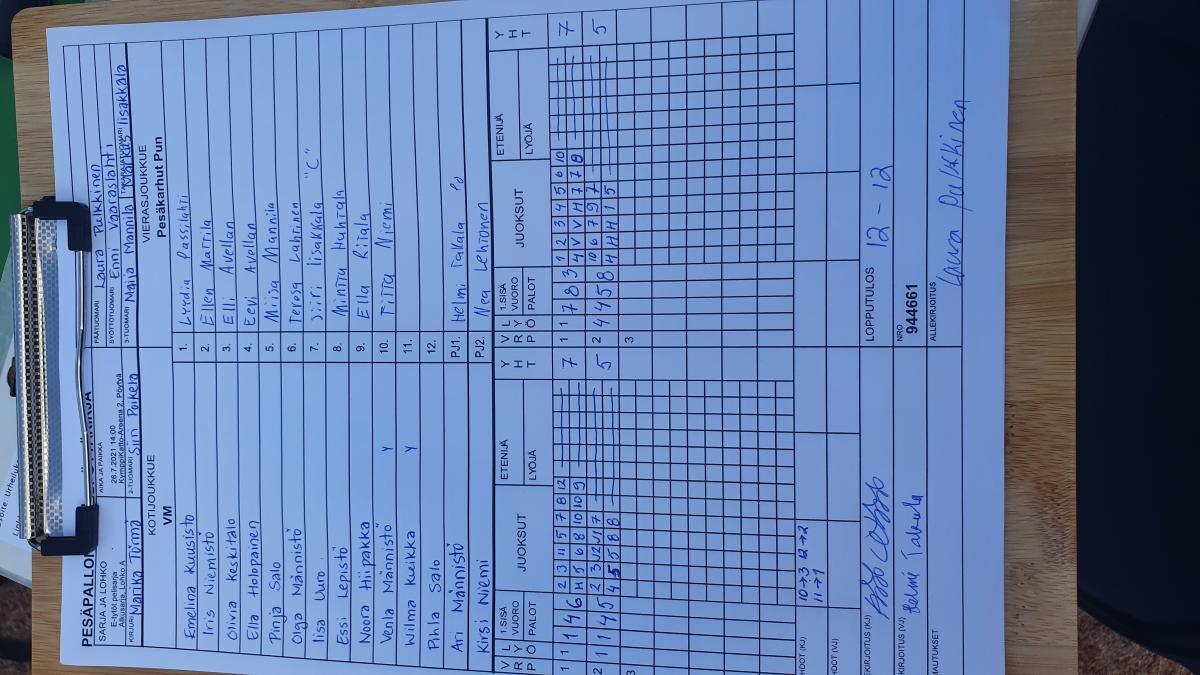 PESÄPALLO
SARJA JA LOHKO
E-tytöt pelisarja
Alkusarja, Lohko A
AIKA JA PAIKKA
28.7.2021 14:00
KymppiKatto-Areena 2, Pöytyä
PÄÄTUOMARI Laura Pulkkinen
SYÖTTÖTUOMARI Enni Vaaraslahti
KIRJURI Marika Törmä
2-TUOMARI Siiri Poikela
3-TUOMARI Maija Mannila
TAKARAJATUOMARI Markus Iisakkala
KOTIJOUKKUE
VM
VIERASJOUKKUE
Pesäkarhut Pun
Emelina Kuusisto 1. Lyydia Passilahti
Iris Niemistö 2. Ellen Mattila
Olivia Keskitalo 3. Elli Avellan
Ella Holopainen 4. Eevi Avellan
Pinja Salo 5. Miisa Mannila
Olga Männistö 6. Teresa Lahtinen
Iisa Uuro 7. Siiri Iisakkala "C"
Essi Lepistö 8. Minttu Huhtala
Noora Hiipakka 9. Ella Ritala
Venla Männistö Y 10. Tiitta Niemi
Wilma Kuikka Y 11.
Pihla Salo 12.
Ari Männistö PJ1. Helmi Takala
Kirsi Niemi PJ2. Nea Lehtonen
V R L Y Ö P 1.SISÄ VUORO PALOT JUOKSUT ETENIJÄ LYÖJÄ Y H T V R L Y Ö P 1.SISÄ VUORO PALOT JUOKSUT ETENIJÄ LYÖJÄ Y H T
1 1 1 4 6 2 3 11 5 7 8 12 7 1 1 7 8 3 1 2 3 4 5 6 10 7
H 5 6 8 10 10 9 4 V V H 7 7 8
2 1 1 4 5 2 3 12 11 7 5 2 4 4 5 8 10 6 7 9 7 5
4 5 5 8 8 4 H H 1 5
3 3
10→3 12→2
11→1
HDOT (KJ)
HDOT (VJ)
LOPPUTULOS 12-12
EKIRJOITUS (KJ)
KIRJOITUS (VJ) Helmi Takala
NRO
944661
MAUTUKSET
ALLEKIRJOITUS Laura Pulkkinen